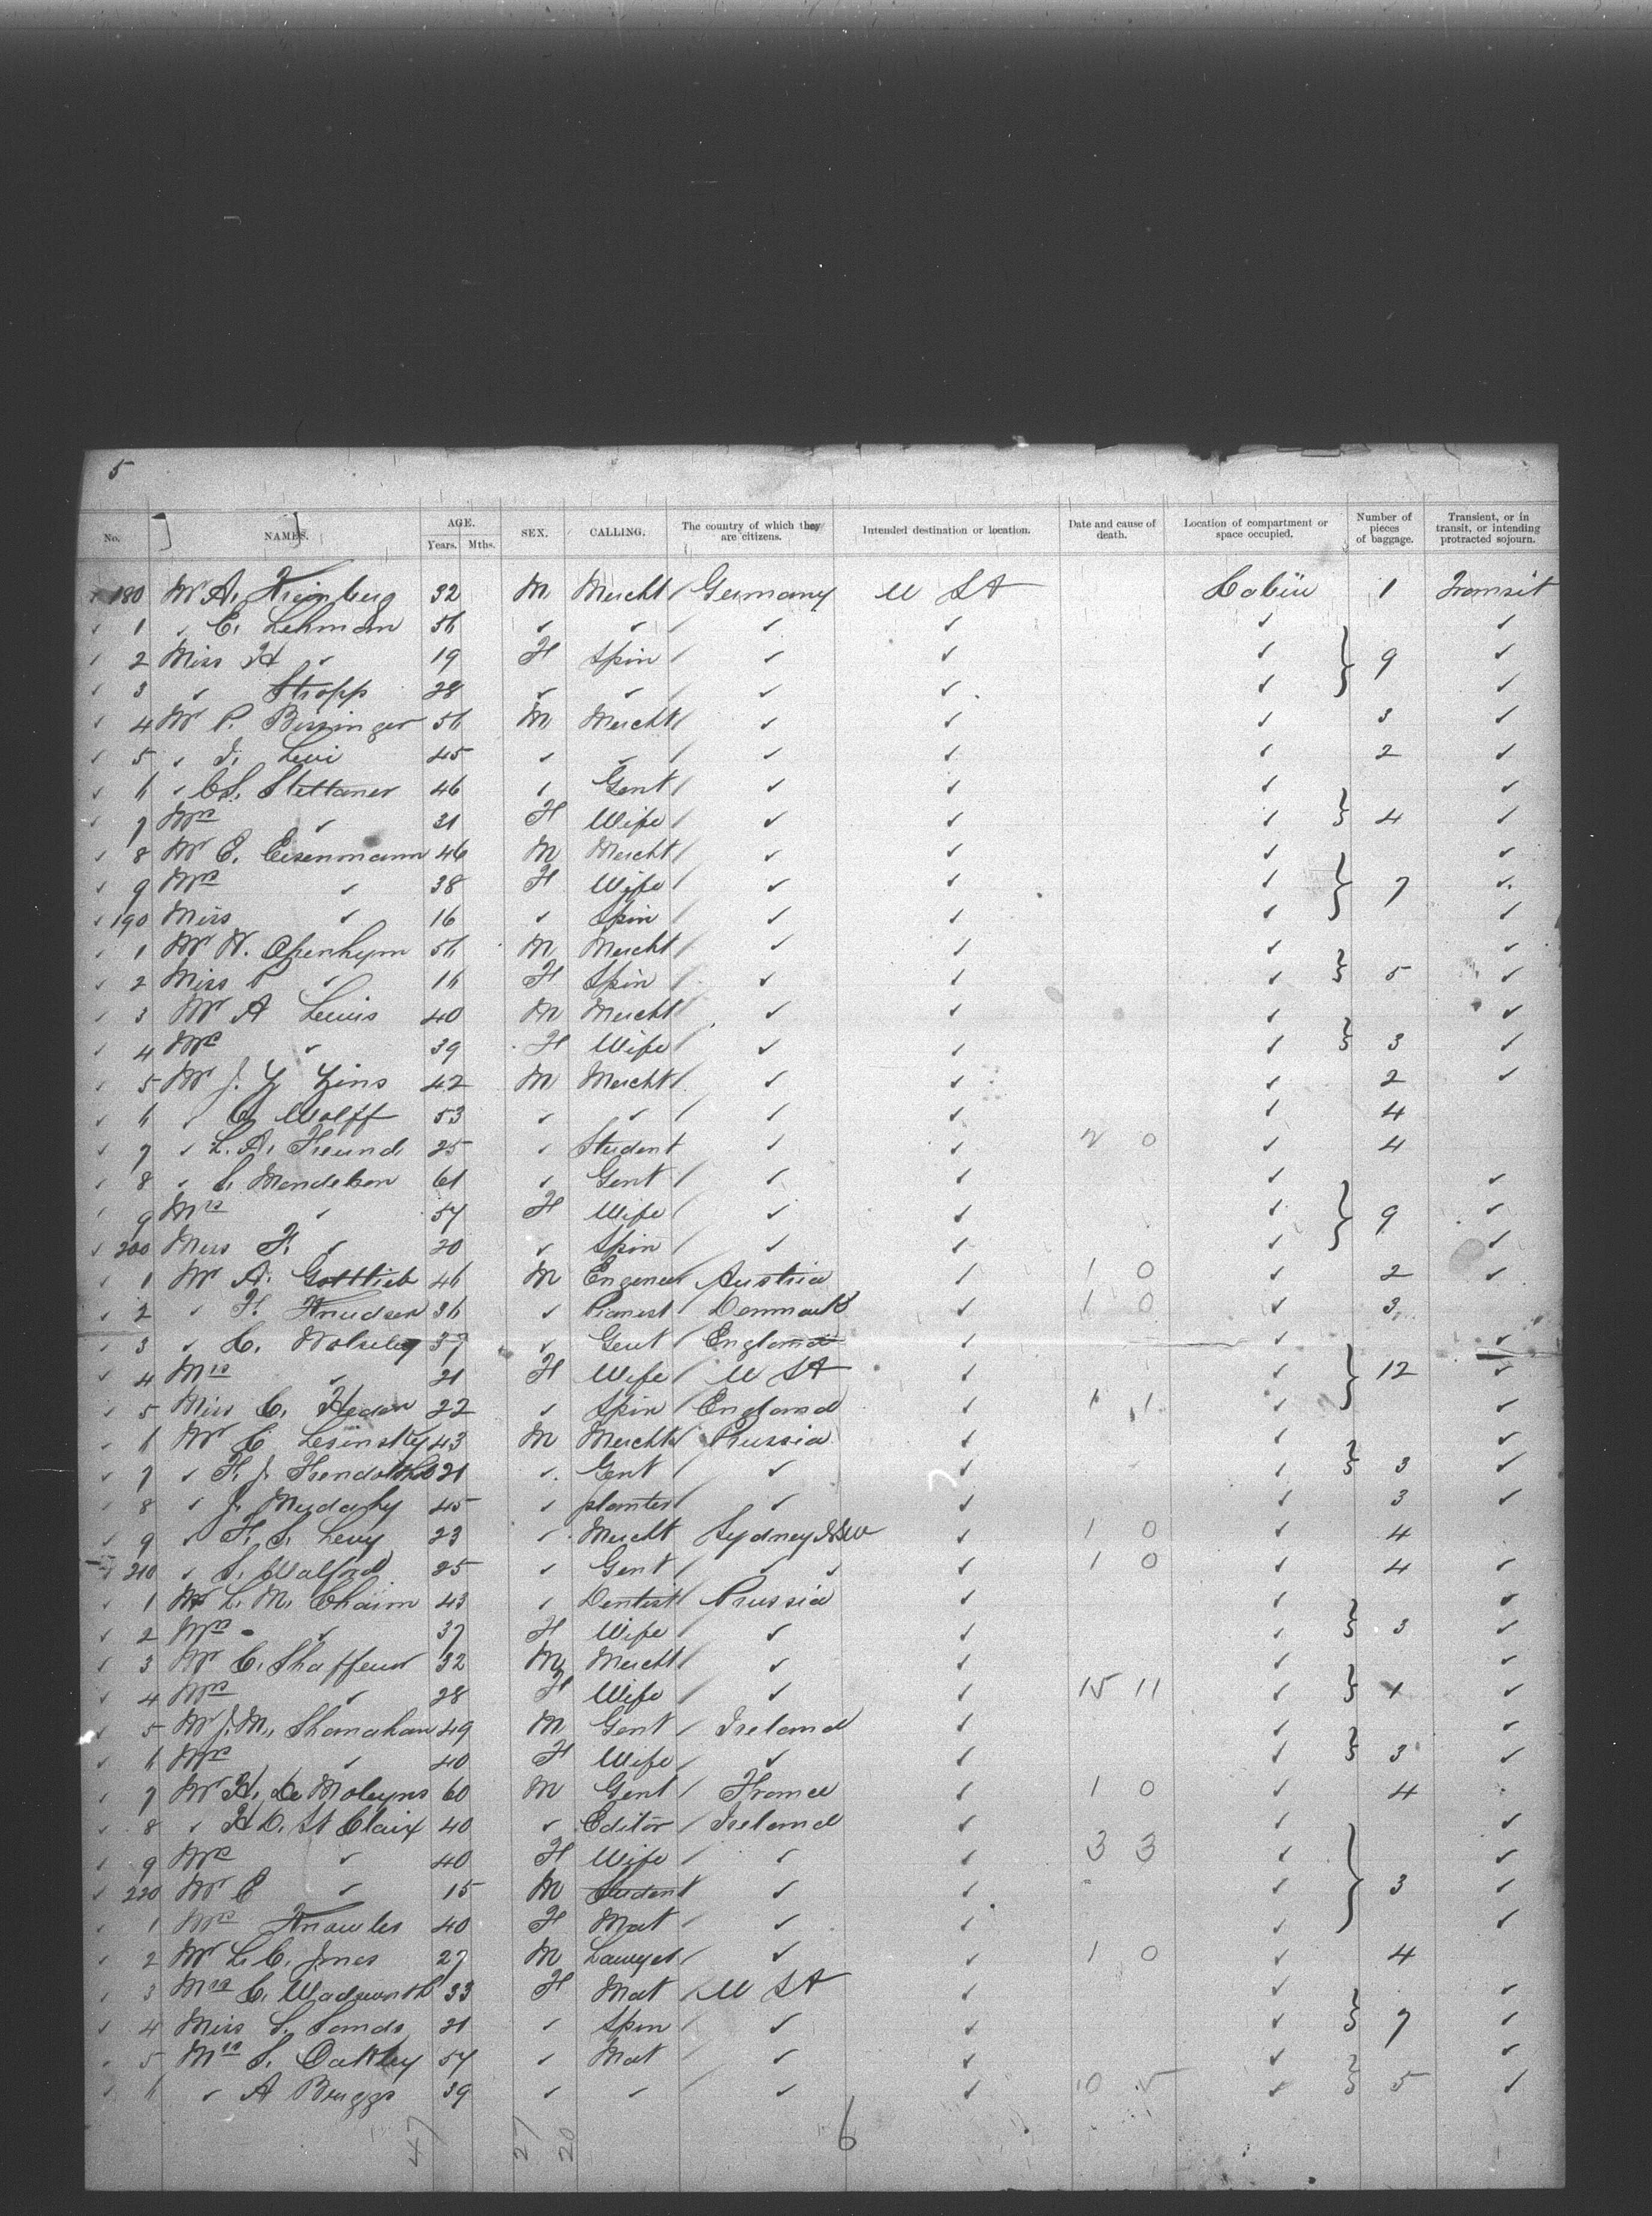 5
No. NAMES. AGE. Years. Mths. SEX. CALLING. The country of which they are citizens. Intended destination or location. Date and cause of death. Location of compartment or space occupied. Number of pieces of baggage. Transient, or in transit, or intending protracted sojourn.
180 Mr A. 32 M Mercht Germany U St Cabin 1 Transit
1 " C. Lehmann 56 " " " " " "
2 Miss H " 19 F Spin " " " 9 "
3 " Stropp 28 " " " " " "
4 Mr P. Bissinger 56 M Mercht " " " 3 "
5 " J. Levi 45 " " " " " 2 "
6 " C.S. Stettaner 46 " Gent " " " "
7 Mrs " 31 F Wife " " " 4 "
8 Mr E. Eisenmann 46 M Mercht " " " "
9 Mrs " 38 F Wife " " " 7 "
190 Miss " 16 " Spin " " " "
1 Mr N. Openhym 56 M Mercht " " " "
2 Miss P " 16 F Spin " " " 5 "
3 Mr A Lewis 40 M Mercht " " " "
4 Mrs " 39 F Wife " " " 3 "
5 Mr J. Y Zins 42 M Mercht " " " 2 "
6 " C. Wolff 53 " " " " " 4
7 " L. A. Freund 25 " Student " " 2 0 " 4
8 " S. Mendelson 61 " Gent " " " "
9 Mrs " 54 F Wife " " " 9 "
200 Miss F. " 20 " Spin " " " "
1 Mr A. Gottlieb 46 M Engineer Austria " 1 0 " 2 "
2 " F. Knudsen 36 " Pianist Denmark " 1 0 " 3
3 " C. Wolseley 37 " Gent England " " "
4 Mrs " 21 F Wife U St " " 12 "
5 Miss C. 22 " Spin England " 1 1 " "
6 Mr C Lesinsky 43 M Mercht Prussia " " "
7 " F. J. 21 " Gent " " " 3 "
8 " J. 45 " planter " " " 3 "
9 " F. S. Levy 23 " Mercht Sydney NSW " 1 0 " 4
210 " S. Walford 25 " Gent " " " 1 0 " 4 "
1 Mr L. M. Chaim 43 " Dentist Prussia " " "
2 Mrs " 37 F Wife " " " 3 "
3 Mr C. Shaffeur 32 M Mercht " " " "
4 Mrs " 28 F Wife " " 15 11 " 1 "
5 Mr J. M. Shanahan 49 M Gent Ireland " " "
6 Mrs " 40 F Wife " " " 3 "
7 Mr H. De Moleyns 60 M Gent France " 1 0 " 4
8 " H. D. St Clair 40 " Editor Ireland " " "
9 Mrs " 40 F Wife " " 3 3 " "
220 Mr E " 15 M Student " " " 3 "
1 Mrs Knowles 40 F Mat " " " "
2 Mr L. C. Jones 27 M Lawyer " " 1 0 " 4
3 Mrs C. Wadsworth 33 F Mat U St " " "
4 Miss S. Sands 21 " Spin " " " 7 "
5 Mrs S. Oakley 54 " Mat " " " "
6 " A Bruggs 39 " " " " 10 5 " 5 "
47 27 20 6